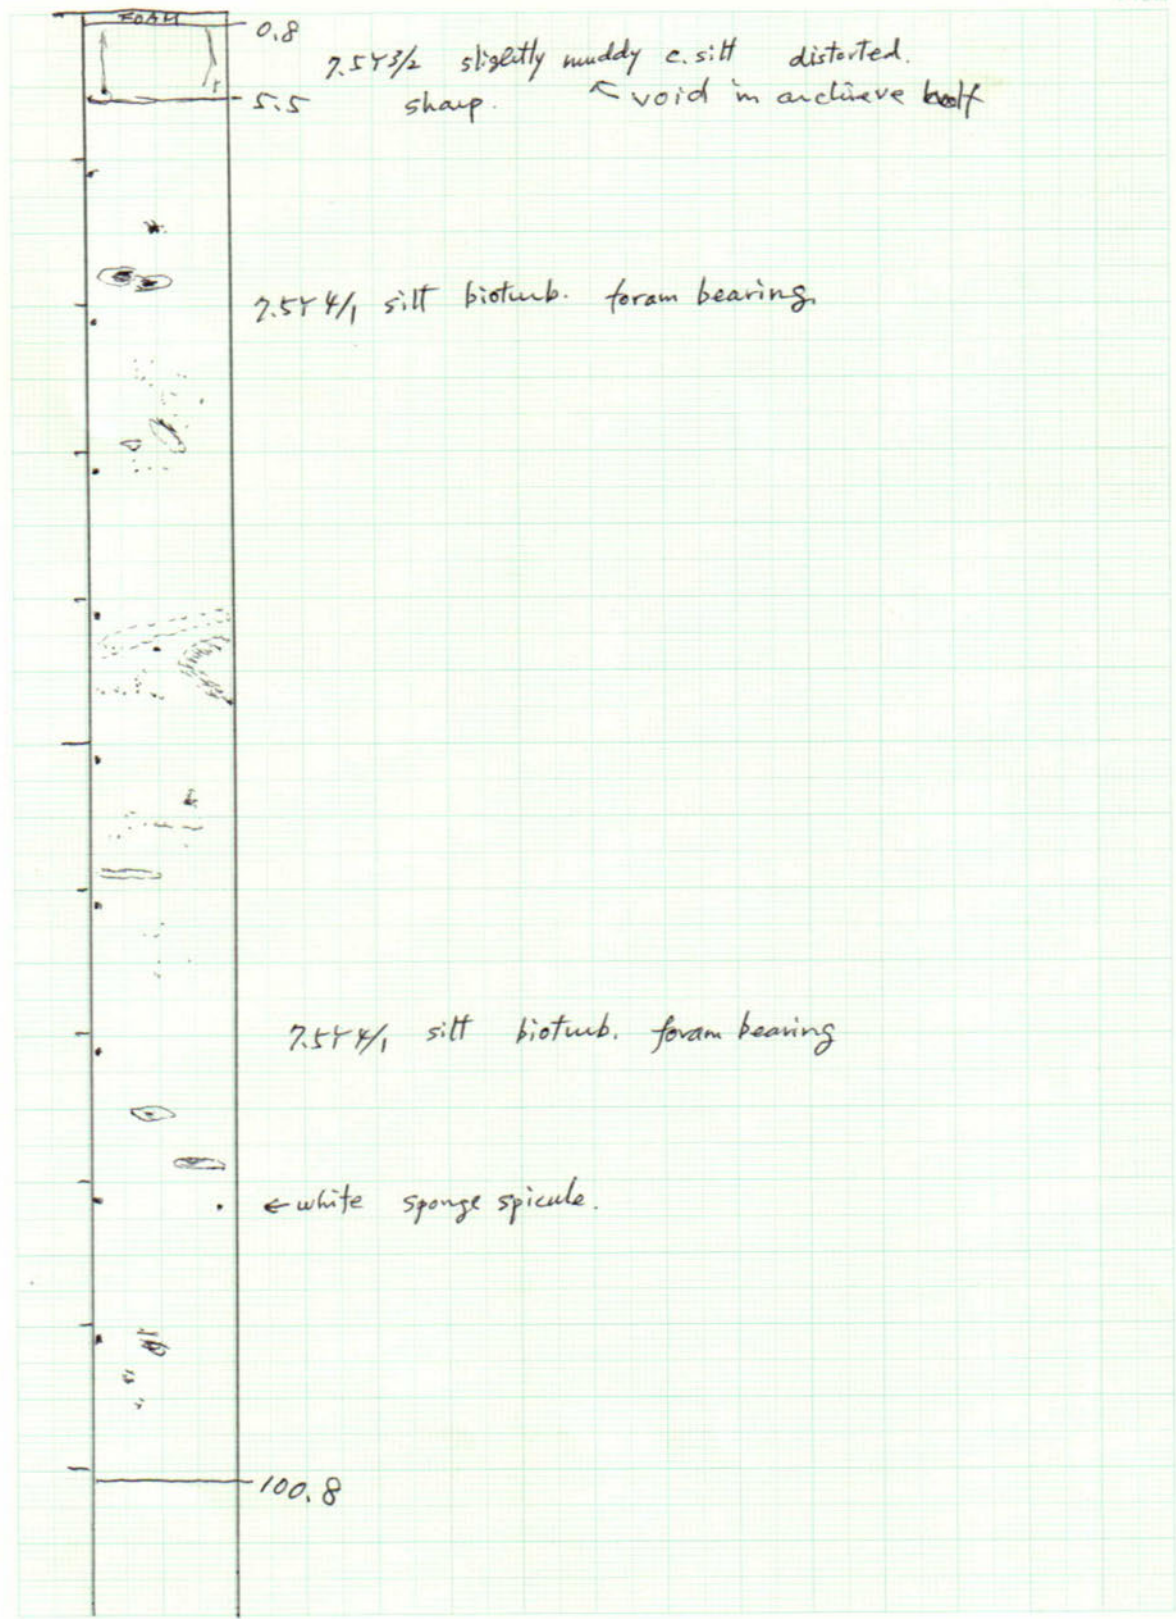 FOAM
0.8
7.5Y3/2 slightly muddy c. silt distorted.
5.5 sharp. ↖ void in archieve half
7.5Y 4/1 silt bioturb. foram bearing.
7.5Y 4/1 silt bioturb. foram bearing
← white sponge spicule.
100.8